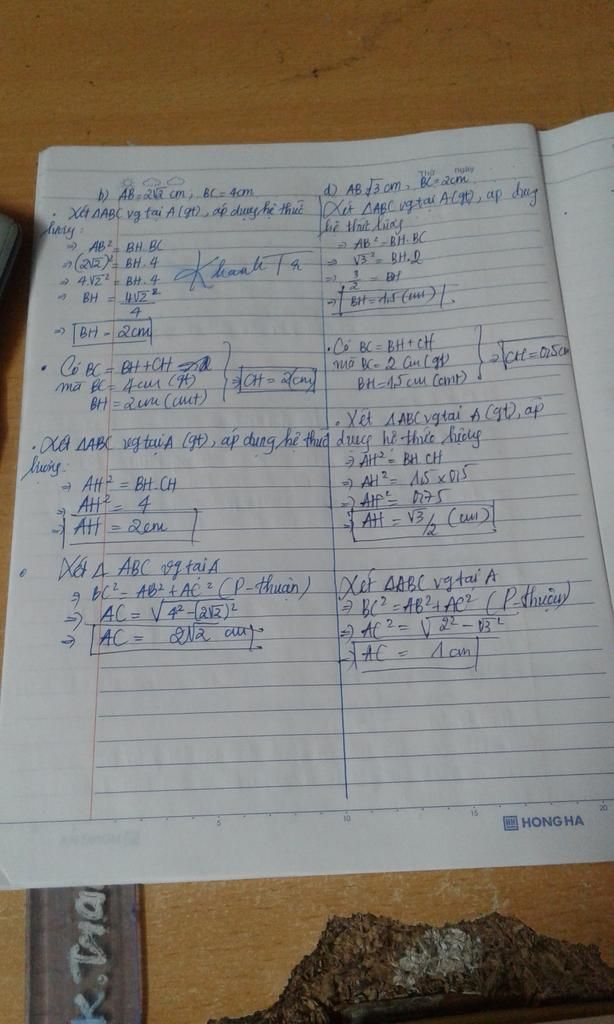 Thứ ngày
b) AB = 2√2 cm, BC = 4cm
. Xét ΔABC vg tại A (gt), áp dụng hệ thức
lượng:
⇒ AB² = BH.BC
⇒ (2√2)² = BH.4
⇒ 4.√2² = BH.4
⇒ BH = 4√2² / 4
⇒ BH = 2cm
Khanh
. Có BC = BH + CH
mà BC = 4cm (gt)
BH = 2cm (cmt)
⇒ CH = 2(cm)
. Xét ΔABC vg tại A (gt), áp dụng hệ thức
lượng:
⇒ AH² = BH.CH
⇒ AH² = 4
⇒ AH = 2cm
Xét Δ ABC vg tại A
⇒ BC² = AB² + AC² (P-thuận)
⇒ AC = √4² - (2√2)²
⇒ AC = 2√2 cm
d) AB √3 cm, BC = 2cm
Xét ΔABC vg tại A (gt), áp dụng
hệ thức lượng
⇒ AB² = BH.BC
⇒ √3² = BH.2
⇒ 3/2 = BH
⇒ BH = 1,5 (cm)
. Có BC = BH + CH
mà BC = 2 cm (gt)
BH = 1,5 cm (cmt)
⇒ CH = 0,5cm
. Xét ΔABC vg tại A (gt), áp
dụng hệ thức lượng
⇒ AH² = BH.CH
⇒ AH² = 1,5 x 0,5
⇒ AH² = 0,75
⇒ AH = √3/2 (cm)
Xét ΔABC vg tại A
⇒ BC² = AB² + AC² (P-thuận)
⇒ AC² = √2² - √3²
⇒ AC = 1 cm
5 10 15 20
HH HONG HA
K.Tha